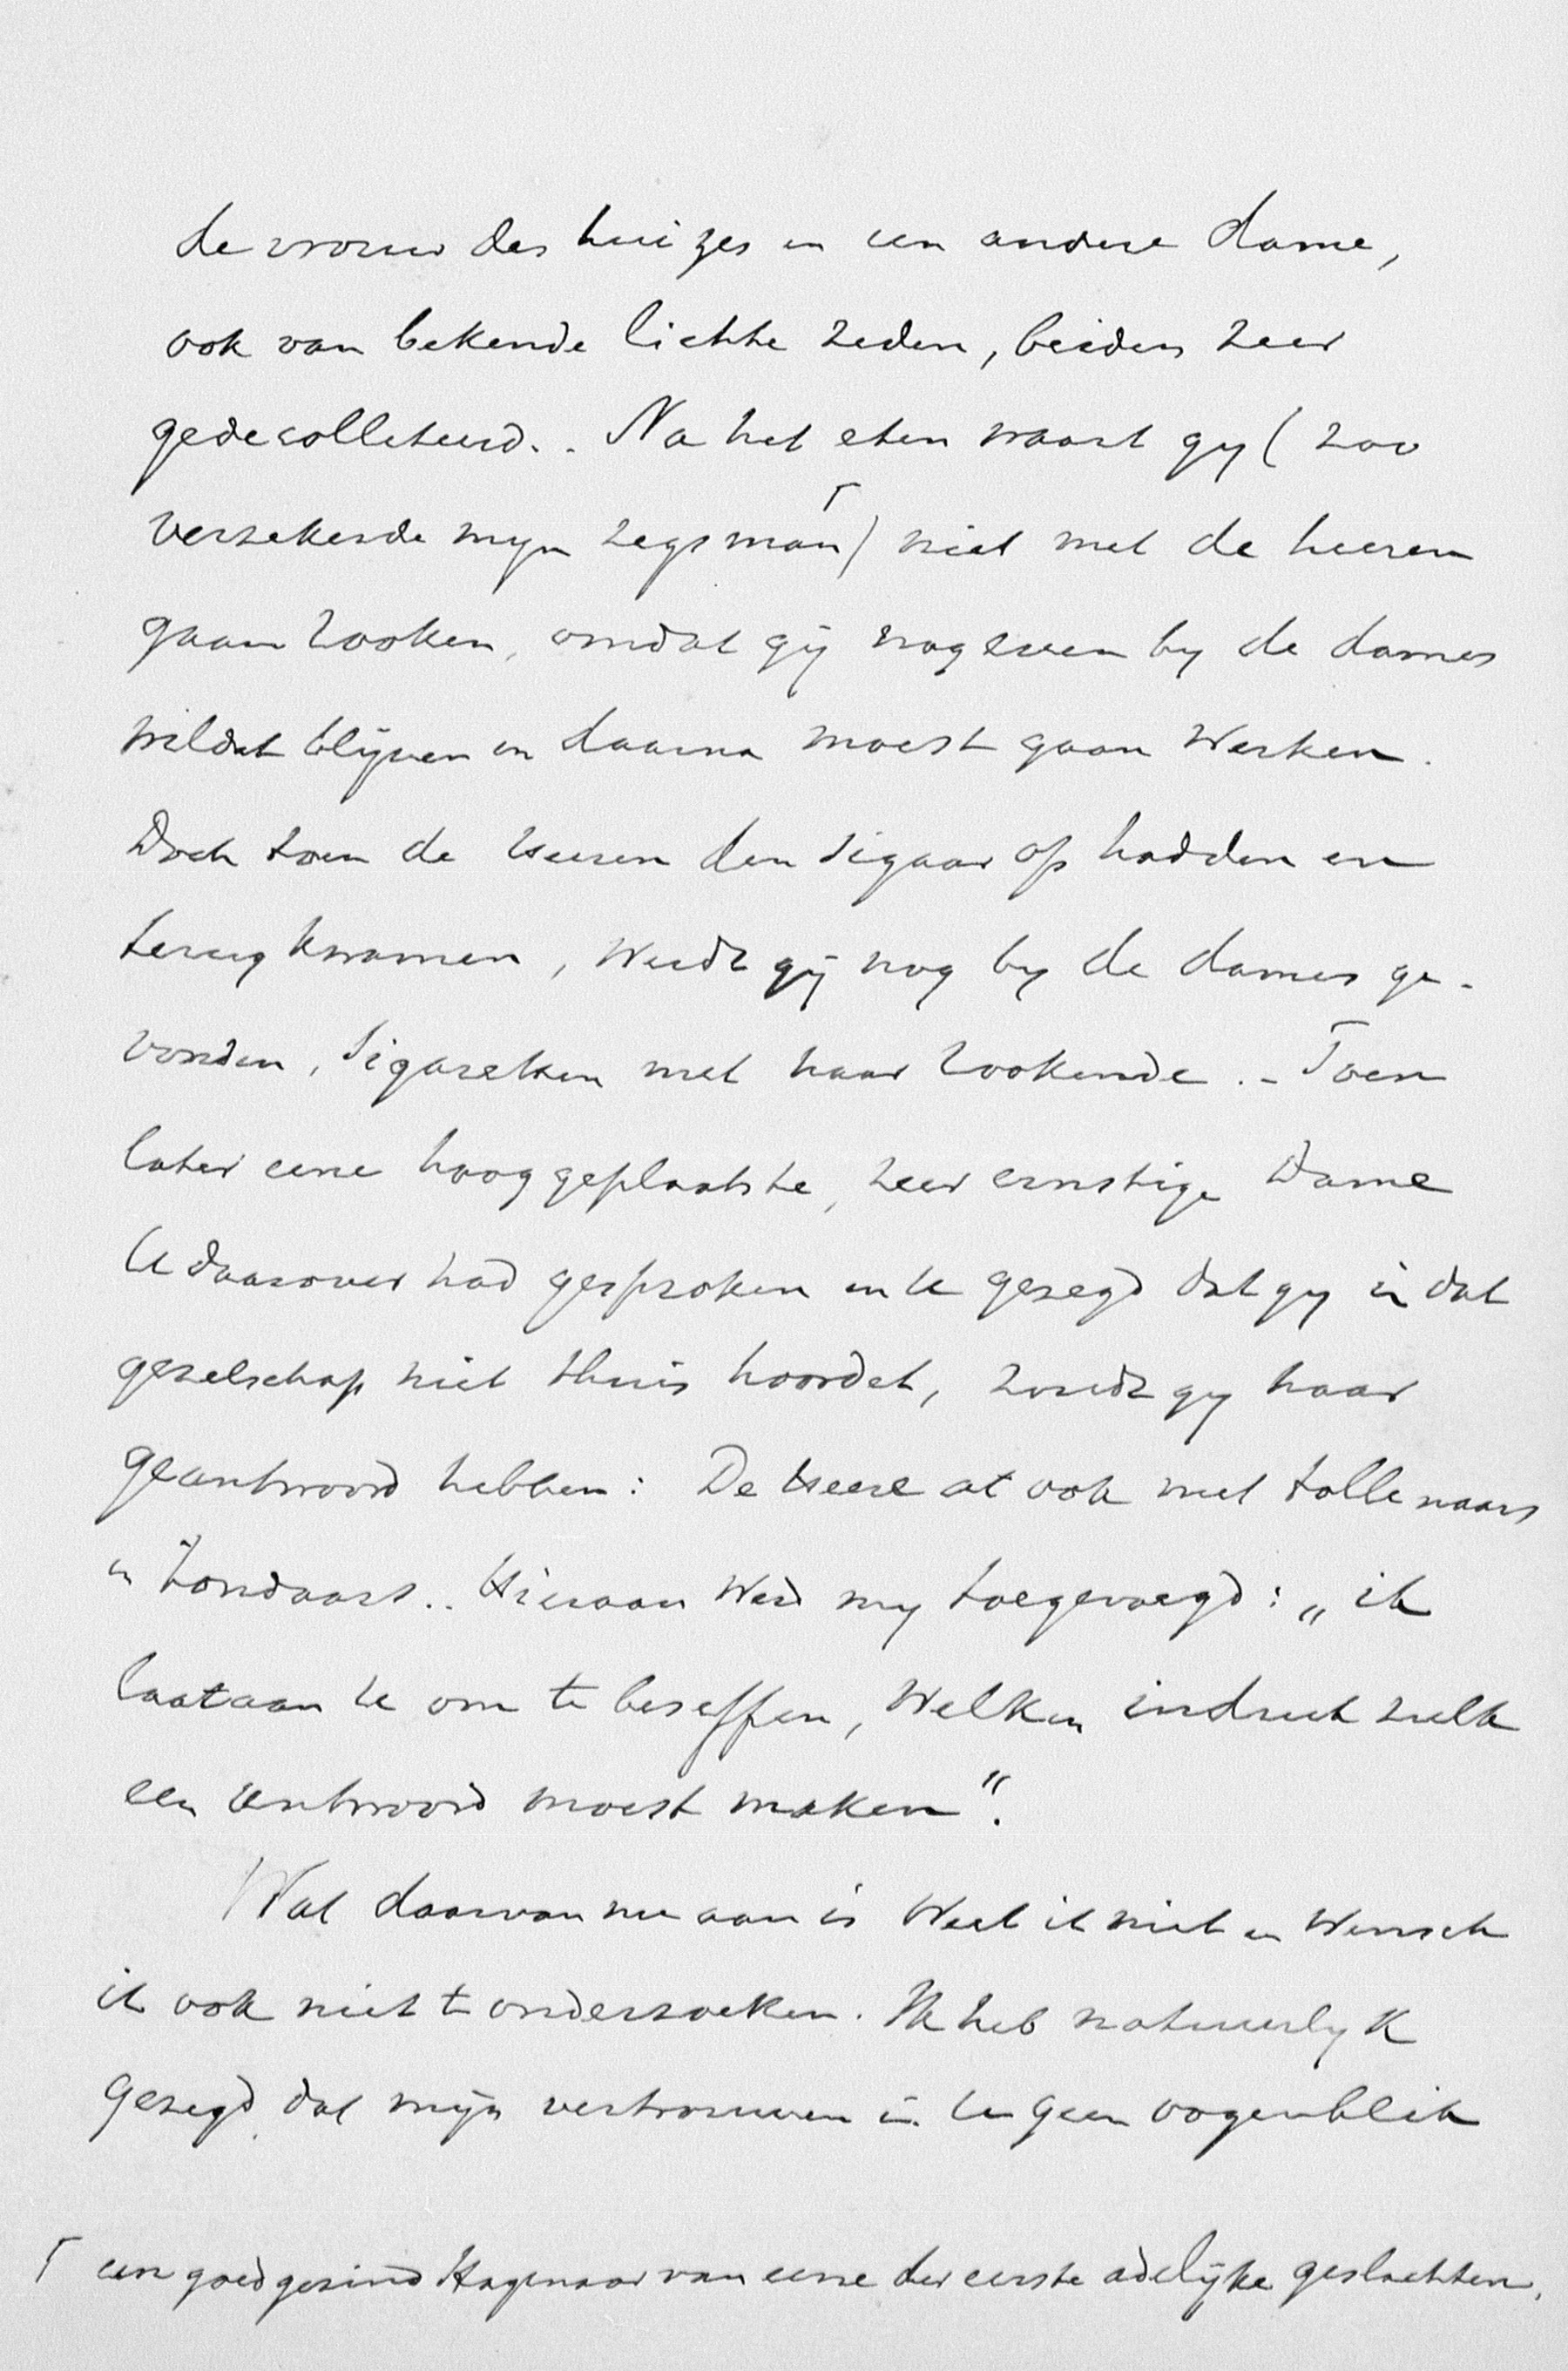 de vrouw des huizes en een andere dame,
ook van bekende lichte zeden, beiden zeer
gedecolleteerd.. Na het eten waart gy (zoo
verzekerde myn zegsman⌈) niet met de heeren
gaan rooken, omdat gij nog even by de dames
wildet blijven en daarna moest gaan werken.
Doch toen de heeren den sigaar op hadden en
terug kwamen, werdt gij nog by de dames ge-
vonden, sigaretten met haar rookende. - Toen
later eene hooggeplaatste, zeer ernstige dame
U daarover had gesproken en U gezegd dat gy in dat
gezelschap niet thuis hoordet, zoudt gy haar
geantwoord hebben: De Heere at ook met tollenaars
en zondaars.. Hieraan werd my toegevoegd: „ik
laat aan U om te beseffen, welken indruk zulk
een antwoord moest maken".
Wat daarvan nu aan is weet ik niet en wensch
ik ook niet te onderzoeken. Ik heb natuurlyk
gezegd dat mijn vertrouwen in U geen oogenblik
⌈ een goedgezind Hagenaar van eene der eerste adelijke geslachten.